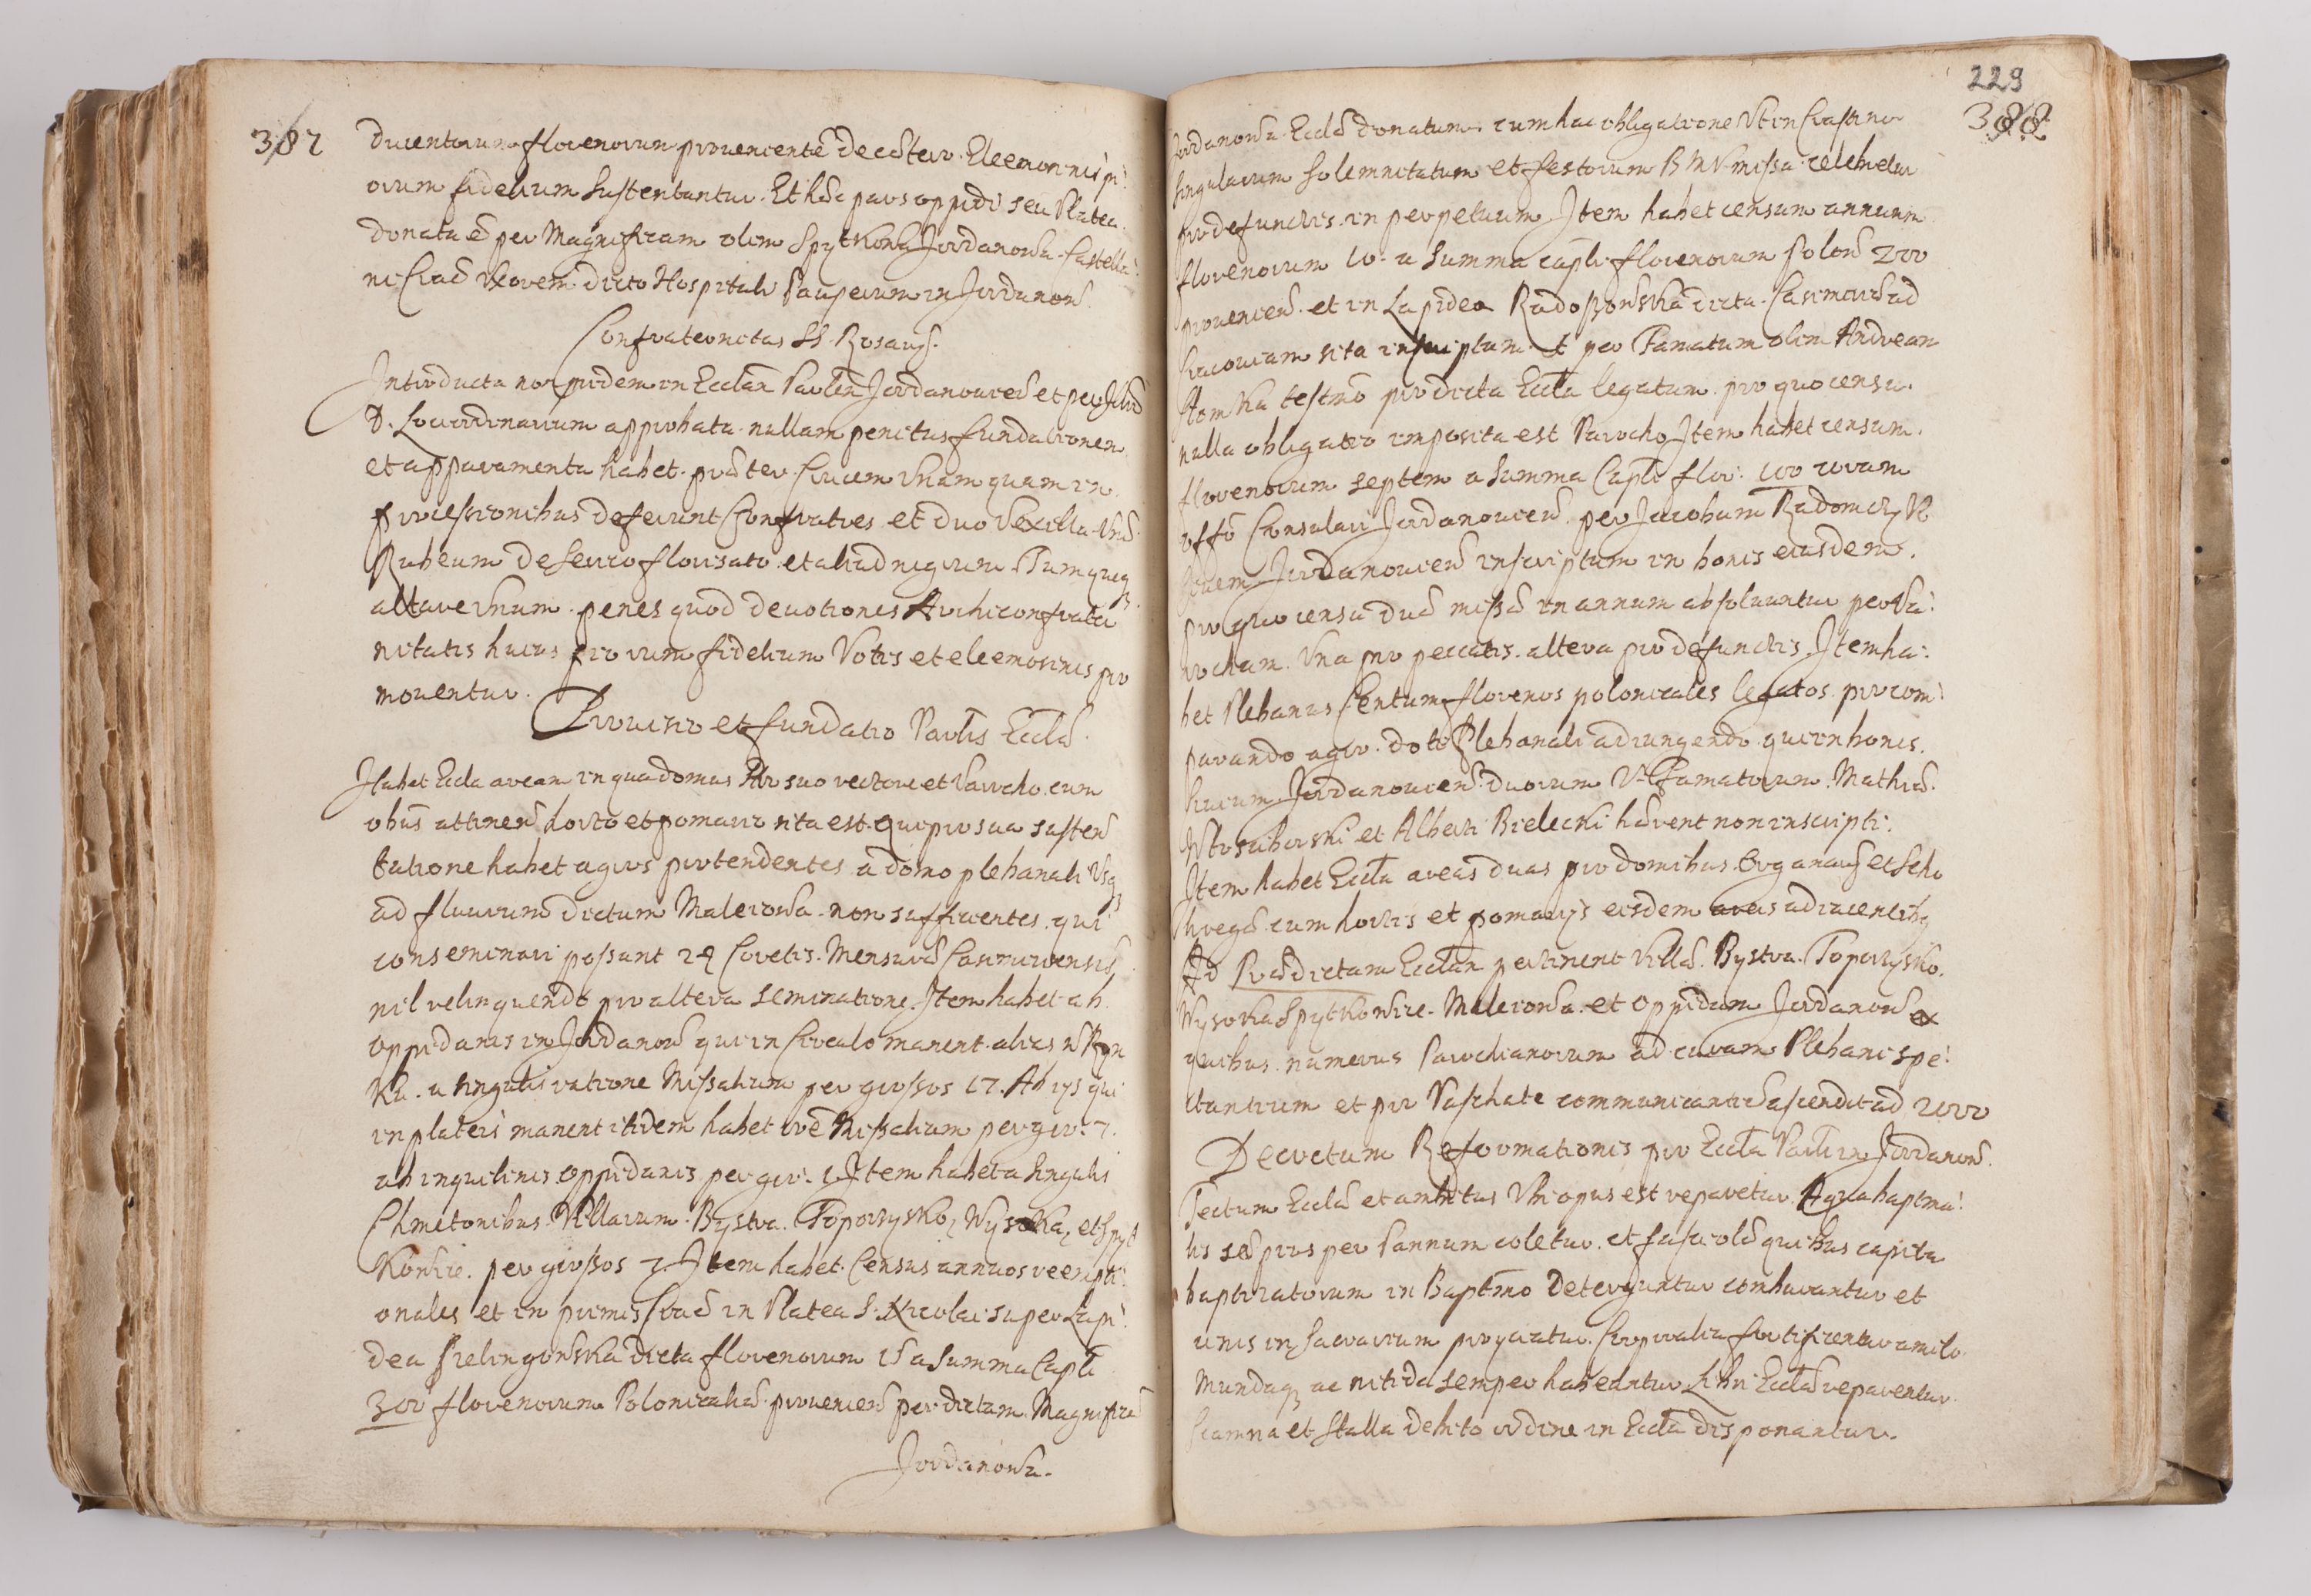 387
ducentorum florenorum proueniente de caetero Eleemosinis pi:
orum fidelium sustentantur. Et haec pars oppidi seu Platea
donata e per Magnificam olim Spytkona Jordanowa Castella:
ni Crac Uxorem dicto Hospitali Pauperum in Jordanow.
Confraternitas SS. Rosarij.
Introducta non pridem in Ecclam Parlem Jordanouien et per Illrm
D. Loci ordinarium approbata nullam penitus fundationem
et apparamenta habet praeter Crucem Unam quam in
processionibus deferunt Confratres et duo Vexilla Unu
Rubeum de serico florisato et aliud nigrum. Tumquoq
altare Unum penes quod deuotiones Archiconfrater
nitatis huius piorum fidelium Votis et eleemosinis pro
mouentur.
Prouisio et fundatio Parlis Ecclae.
Habet Eccla aream in qua domus pro suo rectore et Parocho cum
obus attinen horto et pomario sita est. Qui pro sua susten
tatione habet agros protendentes a domo plebanali Usq
ad fluuium dictum Maleiowa non sufficientes qui
conseminari possunt 24 Coretis Mensurae Casimiriensis
nil relinquendo pro altera seminatione. Item habet ab
oppidanis in Jordanow qui in Circulo manent alias w Ryn
ku a singulis ratione Missalium per grossos 17. Ab ijs qui
in plateis manent itidem habet roe Missalium per gro: 7.
ab inquilinis oppidanis per gro: 1. Item habet a singulis
Chmetonibus Villarum Bystra. Toporzysko, Wysoka, et Spyt
kowice. per grossos 7. Item habet Census annuos reempti:
onales et in primis Crac in Platea S. Nicolai super Lapi:
dea Fielingowska dicta florenorum 15 a summa Capli
300 florenorum Polonicaliu prouenien per dictam Magnificã
Jordanowa.
229
388
Jordanowa Ecclae donatum. cum hac obligatione Ut in Crastino
singularum solemnitatum et festorum B M V missa celebretur
pro defunctis in perpetuum. Item habet censum annuum
florenorum 10. a summa capli florenorum polon 200
prouenien. et in Lapidea Radoszowska dicta Casimiriae ad
Cracouiam sita inscriptum et per Famatum olim Andream
Homka testmo pro dicta Eccla legatum. pro quo censu
nulla obligatio imposita est Parocho. Item habet censum
florenorum septem a summa Capli flor: 100 coram
offo Consulari Jordanouien per Jacobum Radomczyk
Ciuem Jordanouien inscriptum in bonis eiusdem.
pro quo censu duae missae in annum absoluuntur per Pa:
rochum. Una pro peccatis. altera pro defunctis. Item ha:
bet Plebanus Centum florenos polonicales legatos pro com:
parando agro doti Plebanali adiungendo qui in bonis
ciuium Jordanouien duorum Ut Famatorum Mathiae
et Alberti Bielecki haerent non inscripti.
Item habet Eccla areas duas pro domibus Organarij et Scho
laregae cum hortis et pomarijs eisdem areis adiacentibq
Ad Praedictam Ecclam pertinent Villae. Bystra. Toporzysko.
Wysoka Spytkowice. Maleiowa. et Oppidum Jordanow ex
quibus numerus Parochianorum ad curam Plebani spe:
ctantium et pro Paschate communicantiu ascendit ad 2000
Decretum Reformationis pro Eccla Parli in Jordanow.
Tectum Ecclae et ambitus Ubi opus est reparetur. Aqua baptma:
lis saepius per Pannum coletur. et fasciolae quibus capita
baptizatorum in Baptmo deterguntur comburantur et
cinis in sacrarium projiciatur. Corporalia fortificentur amilo
Mundaq ac nitida semper habeantur. Libri Ecclae reparentur
Scamna et Stalla debito ordine in Eccla disponantur.